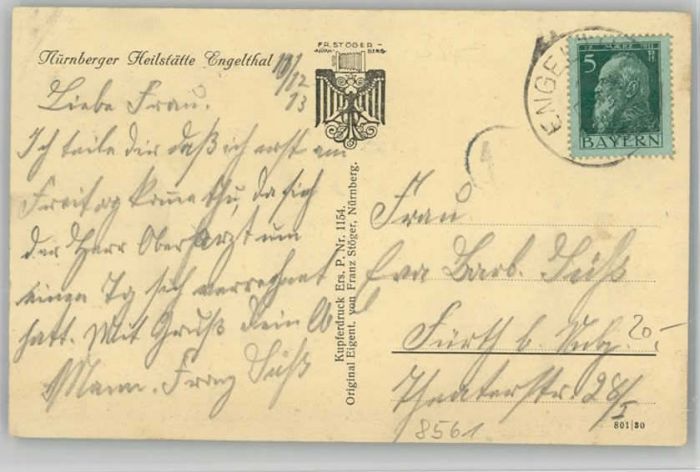 Nürnberger Heilstätte Engelthal 10/
12
13
Liebe Frau.
Ich teile dir daß ich erst am
Freitag komme, da sich
der Herr Oberarzt um
einen Tg sich verrechnet
hatt. Mit Gruß Dein
Mann. Franz Süß
FR. STÖGER
NÜRNBERG
Kupferdruck Ers. P. Nr. 1154.
Original Eigent. von Franz Stöger, Nürnberg.
ENGEL
12. MÄRZ 1911
5
PF
BAYERN
4
Frau
Eva Barb. Süß
Fürth b. Nbg.
20.-
Theaterstr. 28/I
8561
801|30